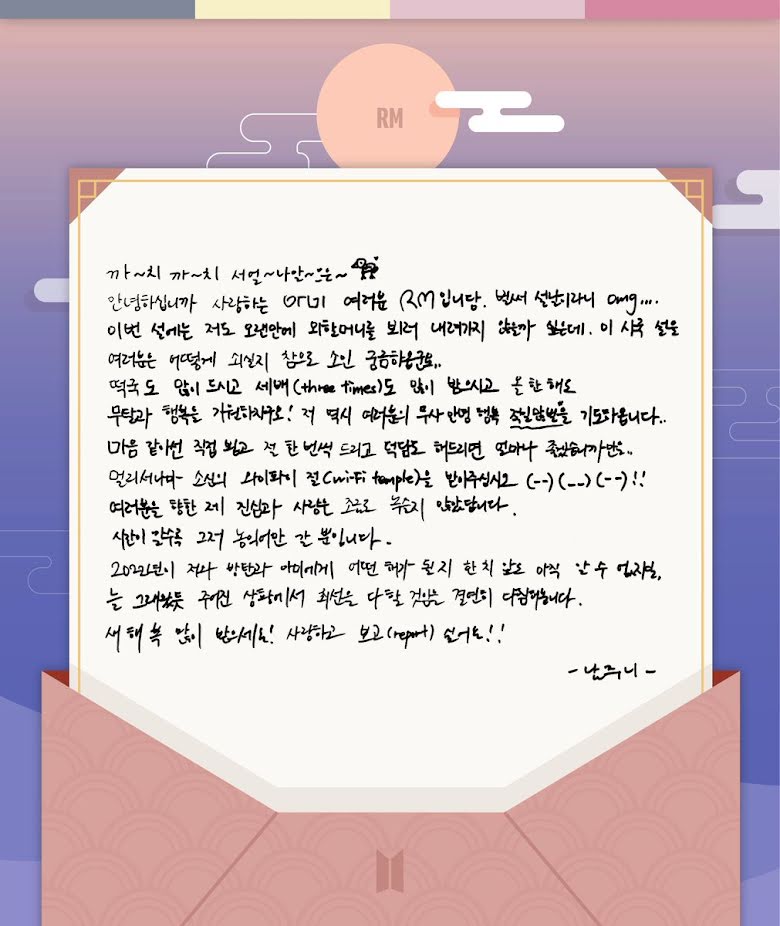 RM
까~치 까~치 서얼~나안~으은~
안녕하십니까 사랑하는 아미 여러분 RM입니당. 벌써 설날이라니 omg....
이번 설에는 저도 오랜만에 외할머니를 뵈러 내려가지 않을까 싶은데. 이 시국 설을
여러분은 어떻게 쇠실지 참으로 소인 궁금하옵군요..
떡국도 많이 드시고 세배(three times)도 많이 받으시고 올 한 해도
무탈과 행복을 기원하자구요! 저 역시 여러분의 무사 안녕 행복 을 기도하옵니다..
마음 같아선 직접 뵙고 절 한 번씩 드리고 덕담도 해드리면 얼마나 좋겠습니까만은..
멀리서나마 소신의 와이파이 절(wi-fi temple)을 받아주십시오 (--)(__)(--)!!
여러분을 향한 제 진심과 사랑은 조금도 녹슬지 않았답니다.
시간이 갈수록 그저 농익어만 갈 뿐입니다.
2022년이 저와 방탄과 아미에게 어떤 해가 될지 한 치 앞도 아직 알 수 없지만,
늘 그래왔듯 주어진 상황에서 최선을 다할 것임을 결연히 다짐해봅니다.
새해 복 많이 받으세요! 사랑하고 보고(report) 싶어요!!
- 남주니 -